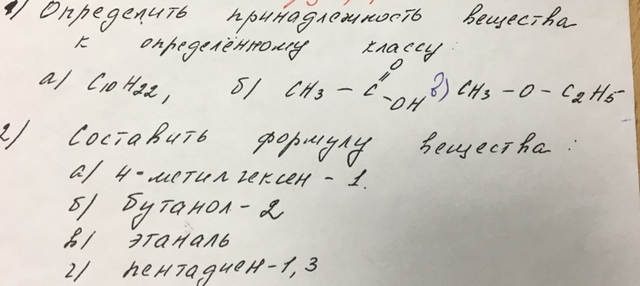 1) Определить принадлежность вещества
к определённому классу:
а) C10H22, б) CH3 – C =O –OH в) CH3 – O – C2H5
2) Составить формулу вещества:
а) 4-метилгексен-1.
б) бутанол-2
в) этаналь
г) пентадиен-1,3